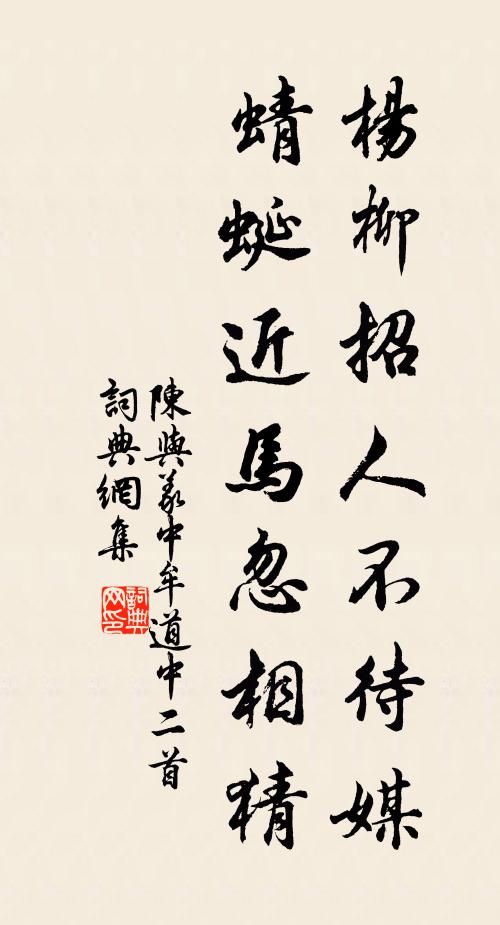 楊柳招人不待媒
蜻蜓近馬忽相猜
陳與義中牟道中二首
詞典網集
詞典网印